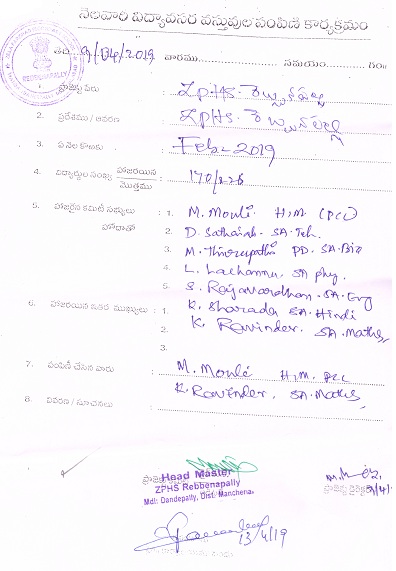 నెలవారి విద్యావసర వస్తువుల పంపిణి కార్యక్రమం
REBBENAPALLY
తేది 9/04/2019 వారము సమయం గం॥
ప్రాజెక్టు పేరు : ZPHS. రెబ్బనపల్లి
2. ప్రదేశము / ఆవరణ : ZPHS. రెబ్బనపల్లి
3. ఏ నెల కొరకు : Feb-2019
4. విద్యార్థుల సంఖ్య హాజరయిన / మొత్తము : 170/226
5. హాజరైన కమిటీ సభ్యులు : 1. M. Mouli H.M. (PCC)
హోదాతో 2. D. Sathaiah SA. Tel.
3. M. Thirupathi PD. SA. Bio
4. L. Lachannu, SA phy.
5. S. Rajavardhan. SA. Eng
6. హాజరయిన ఇతర ముఖ్యులు : 1. K. Sharada SA. Hindi
2. K. Ravinder. SA. Maths,
3.
7. పంపిణి చేసిన వారు : M. Mouli H.M. PCC
K. Ravinder. SA. Maths,
8. వివరణ / సూచనలు :
Head Master
ZPHS Rebbenapally
Mdl: Dandepally, Dist: Mancherial
13/4/19